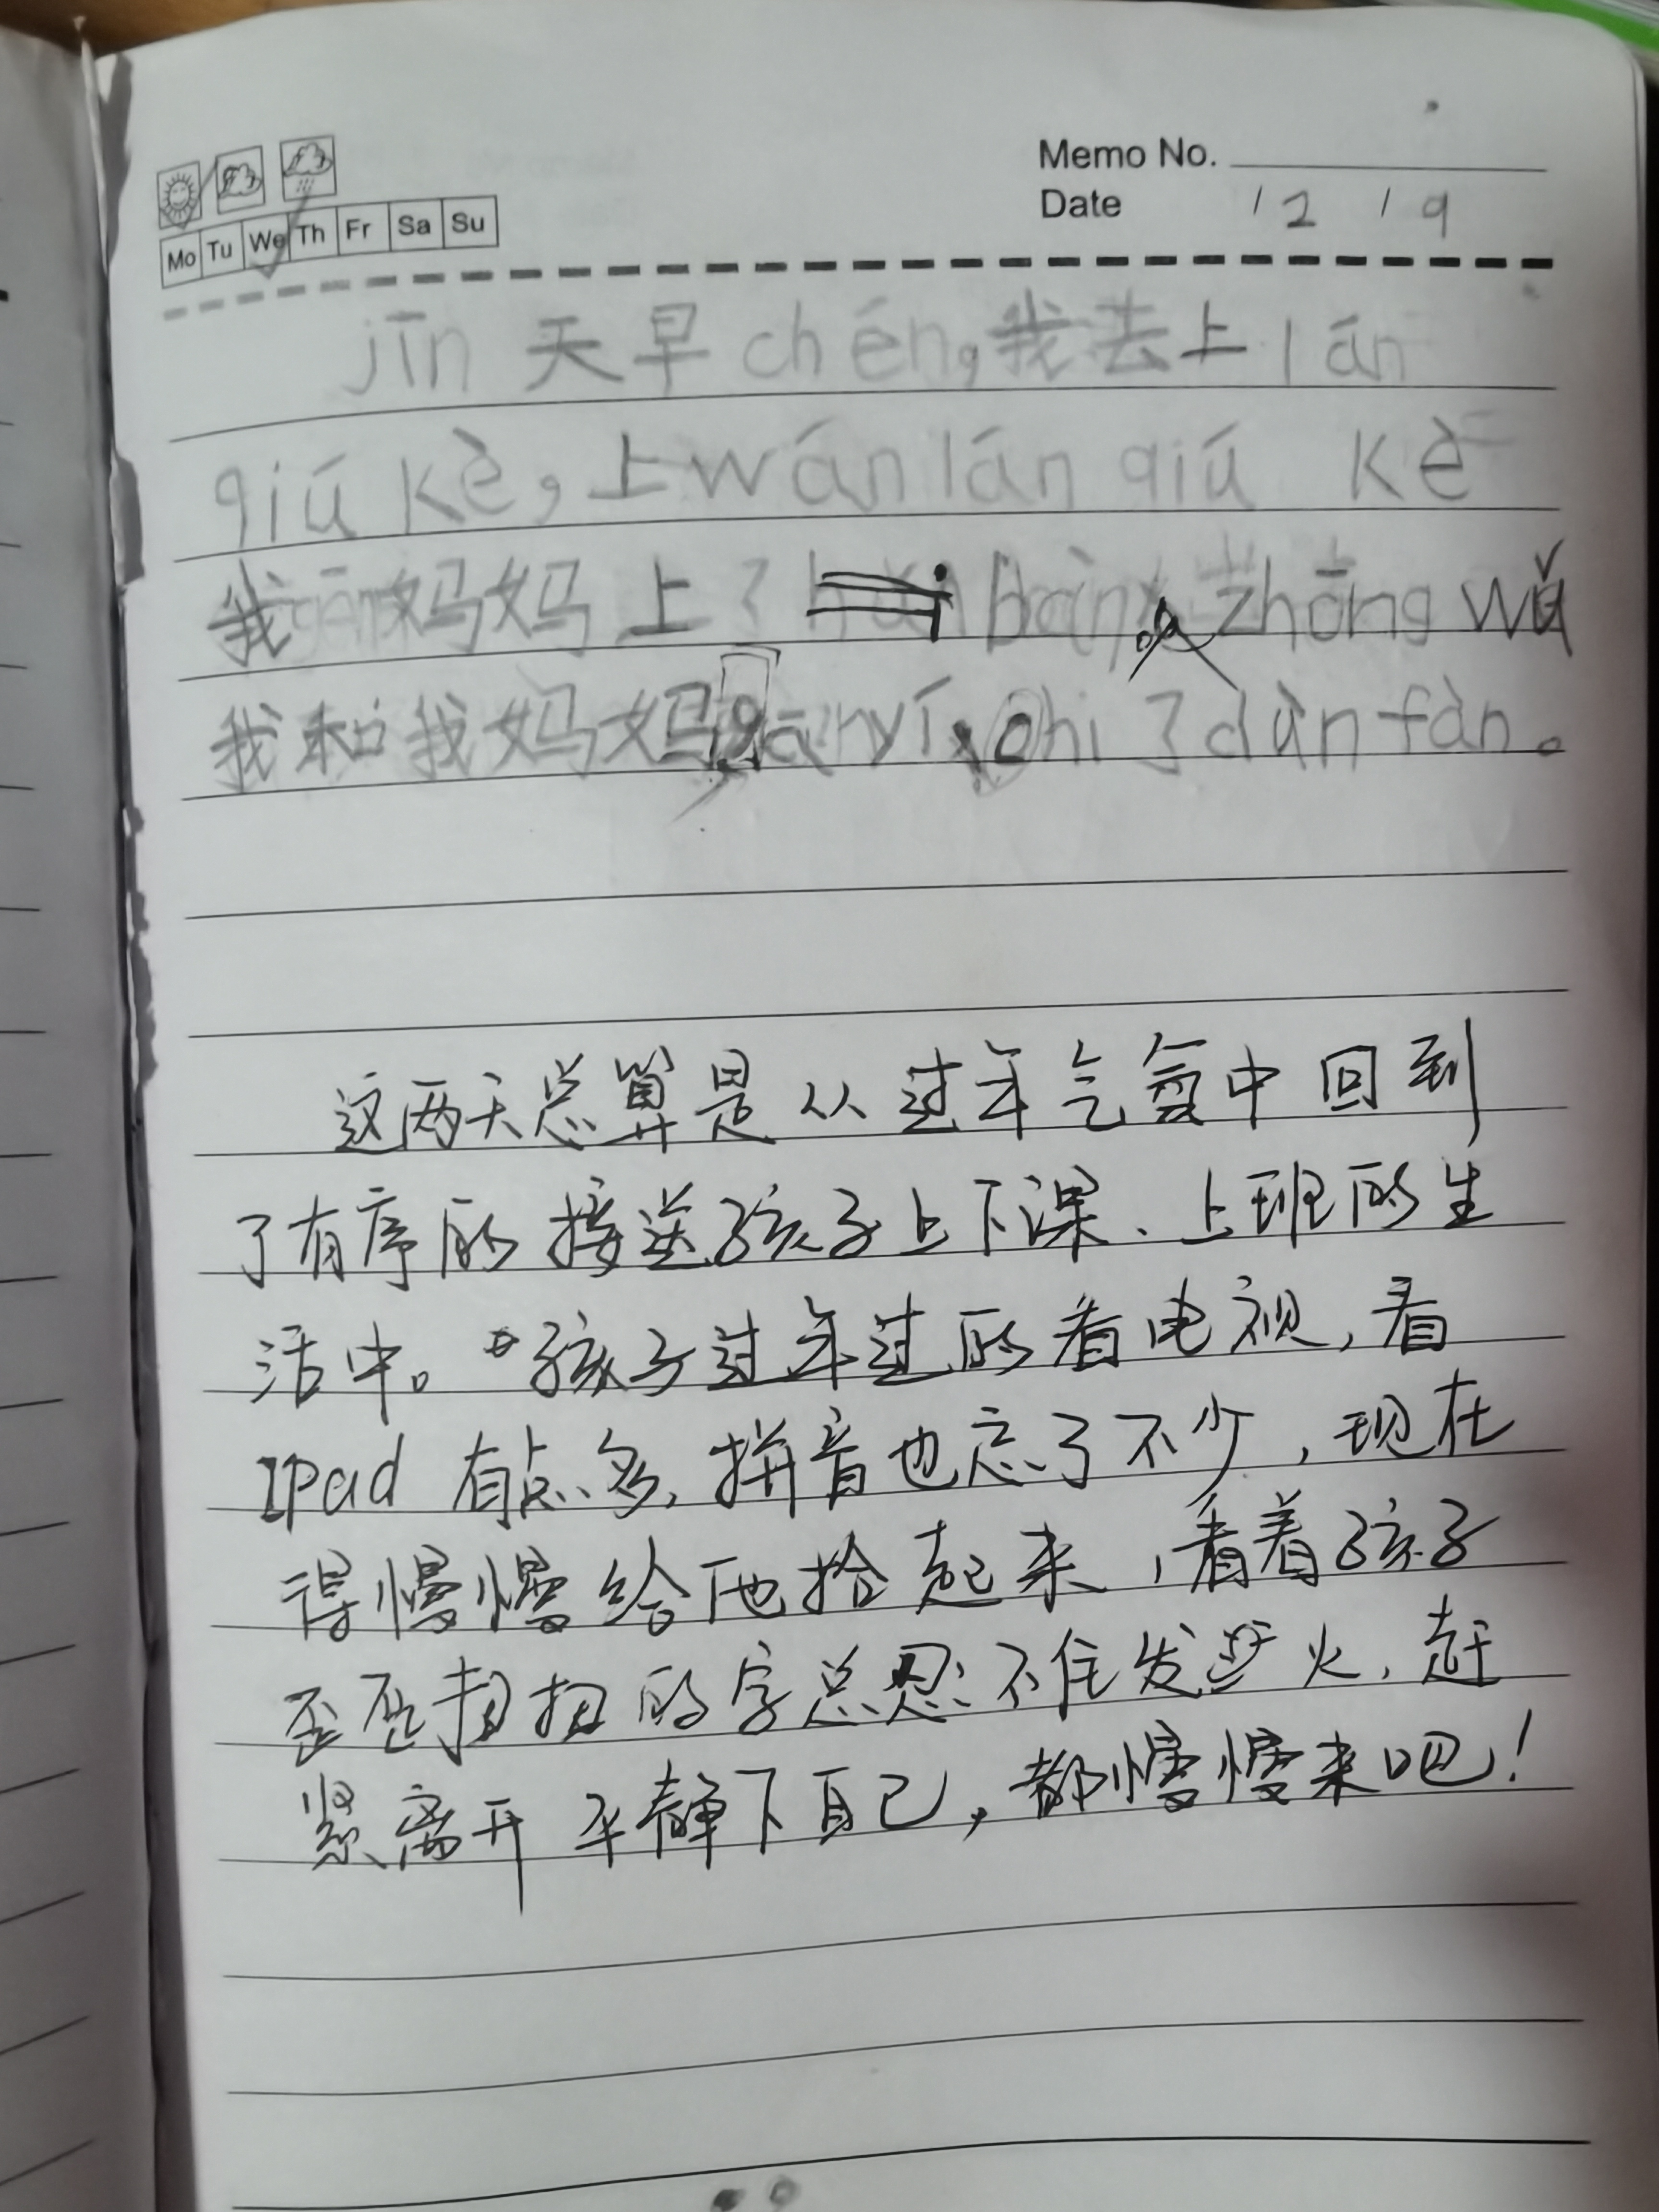 Memo No.
Date 12 19
Mo Tu We Th Fr Sa Su
jīn 天早 chén，我去上 lán
qiú kè，上 wán lán qiú kè
我 妈妈上了 bān，zhōng wǔ
我和我妈妈 yí chi 了 dùn fàn。
这两天总算是从过年气氛中回到
了有序的接送孩子上下课、上班的生
活中。孩子过年过的看电视，看
IPad 有点多，拼音也忘了不少，现在
得慢慢给他拾起来，看着孩子
歪歪扭扭的字总忍不住发 火，赶
紧离开平静下自己，都慢慢来吧！